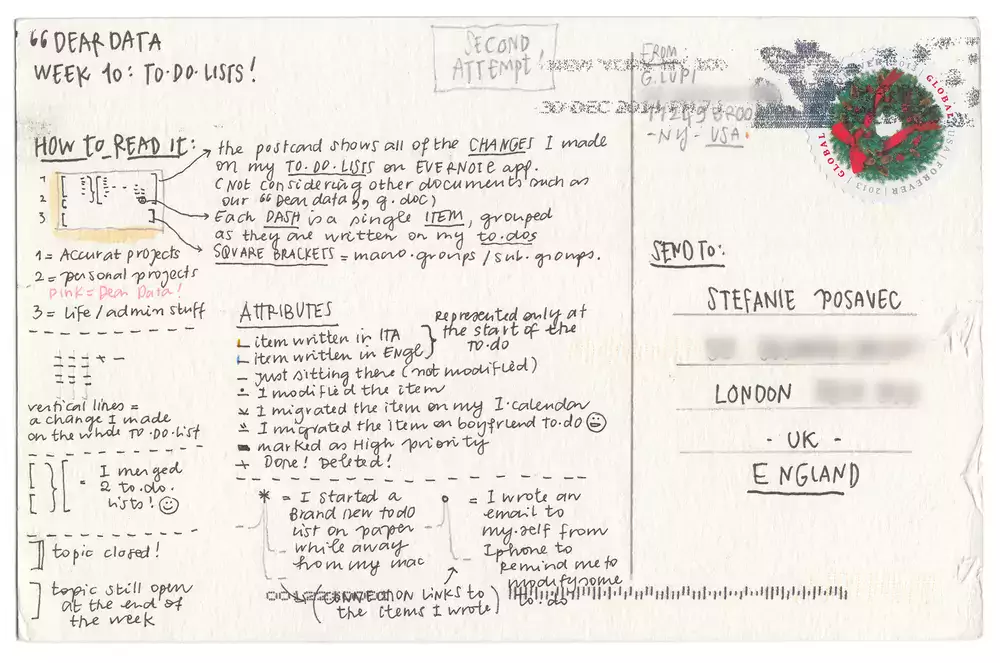 “ DEAR DATA
WEEK 10: TO·DO·LISTS!
SECOND
ATTEMPT!
FROM
G. LUPI
11249 BROO
-NY- USA
NEW YORK NY 100
30 DEC
FOREVER
GLOBAL
USA
FOREVER
2013
GLOBAL
HOW TO READ IT:
1
2
3
the postcard shows all of the CHANGES I made
on my TO·DO·LISTS on EVERNOTE app.
(Not considering other documents such as
our “Dear data„ g.doc)
Each DASH is a single ITEM, grouped
as they are written on my to.dos
SQUARE BRACKETS = macro·groups / sub·groups.
1 = Accurat projects
2 = personal projects
pink = Dear Data!
3 = life / admin stuff
vertical lines =
a change I made
on the whole TO·DO·LIST
= I merged
2 to.do.
lists!
topic closed!
topic still open
at the end of
the week
ATTRIBUTES
item written in ITA
item written in Engl
Represented only at
the start of the
TO·DO
just sitting there (not modified)
I modified the item
I migrated the item on my I·calendar
I migrated the item on boyfriend to.do
marked as High priority
Done! Deleted!
* = I started a
Brand new todo
list on paper
while away
from my mac
= I wrote an
email to
my.self from
Iphone to
remind me to
modify some
to·do
(CONNECTION LINKS to
the items I wrote)
SEND TO:
STEFANIE POSAVEC
LONDON
- UK -
ENGLAND